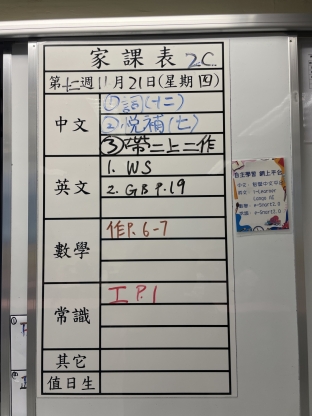 家課表 2C
第十二週11月21日(星期四)
中文
①詞(十二)
②悅補(七)
③帶二上二作
英文
1. WS
2. GB P.19
數學
作P.6-7
常識
工P.1
其它
值日生
自主學習 網上平台